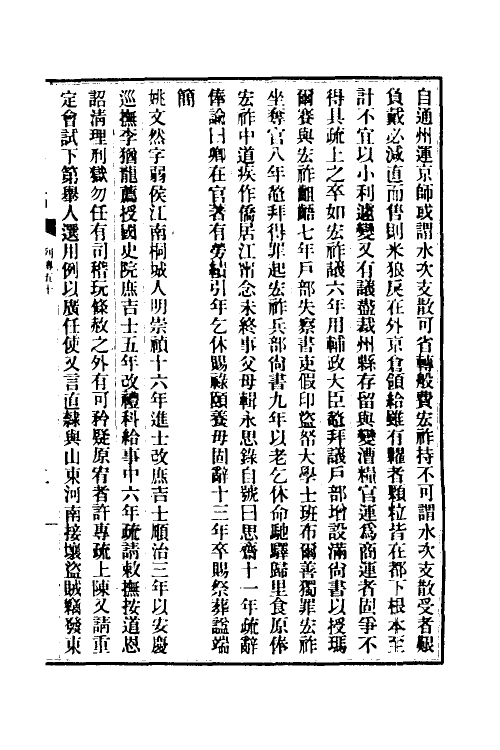 自通州運京師或謂水次支散可省轉般費宏祚持不可謂水次支散受者艱
負戴必減直而售則米狼戾在外京倉領給雖有糶者顆粒皆在都下根本至
計不宜以小利遽變又有議盡裁州縣存留與變漕糧官運爲商運者固爭不
得具疏上之卒如宏祚議六年用輔政大臣鼇拜議戶部增設滿尚書以授瑪
爾賽與宏祚齟齬七年戶部失察書吏假印盜帑大學士班布爾善獨罪宏祚
坐奪官八年鼇拜得罪起宏祚兵部尚書九年以老乞休命馳驛歸里食原俸
宏祚中道疾作僑居江甯念未終事父母輯永思錄自號曰思齋十一年疏辭
俸諭曰卿在官著有勞績引年乞休賜祿頤養毋固辭十三年卒賜祭葬諡端
簡
姚文然字弱侯江南桐城人明崇禎十六年進士改庶吉士順治三年以安慶
巡撫李猶龍薦授國史院庶吉士五年改禮科給事中六年疏請敕撫按道恩
詔清理刑獄勿任有司稽玩條赦之外有可矜疑原宥者許專疏上陳又請重
定會試下第舉人選用例以廣任使又言直隸與山東河南接壤盜賊竊發東
列傳五十